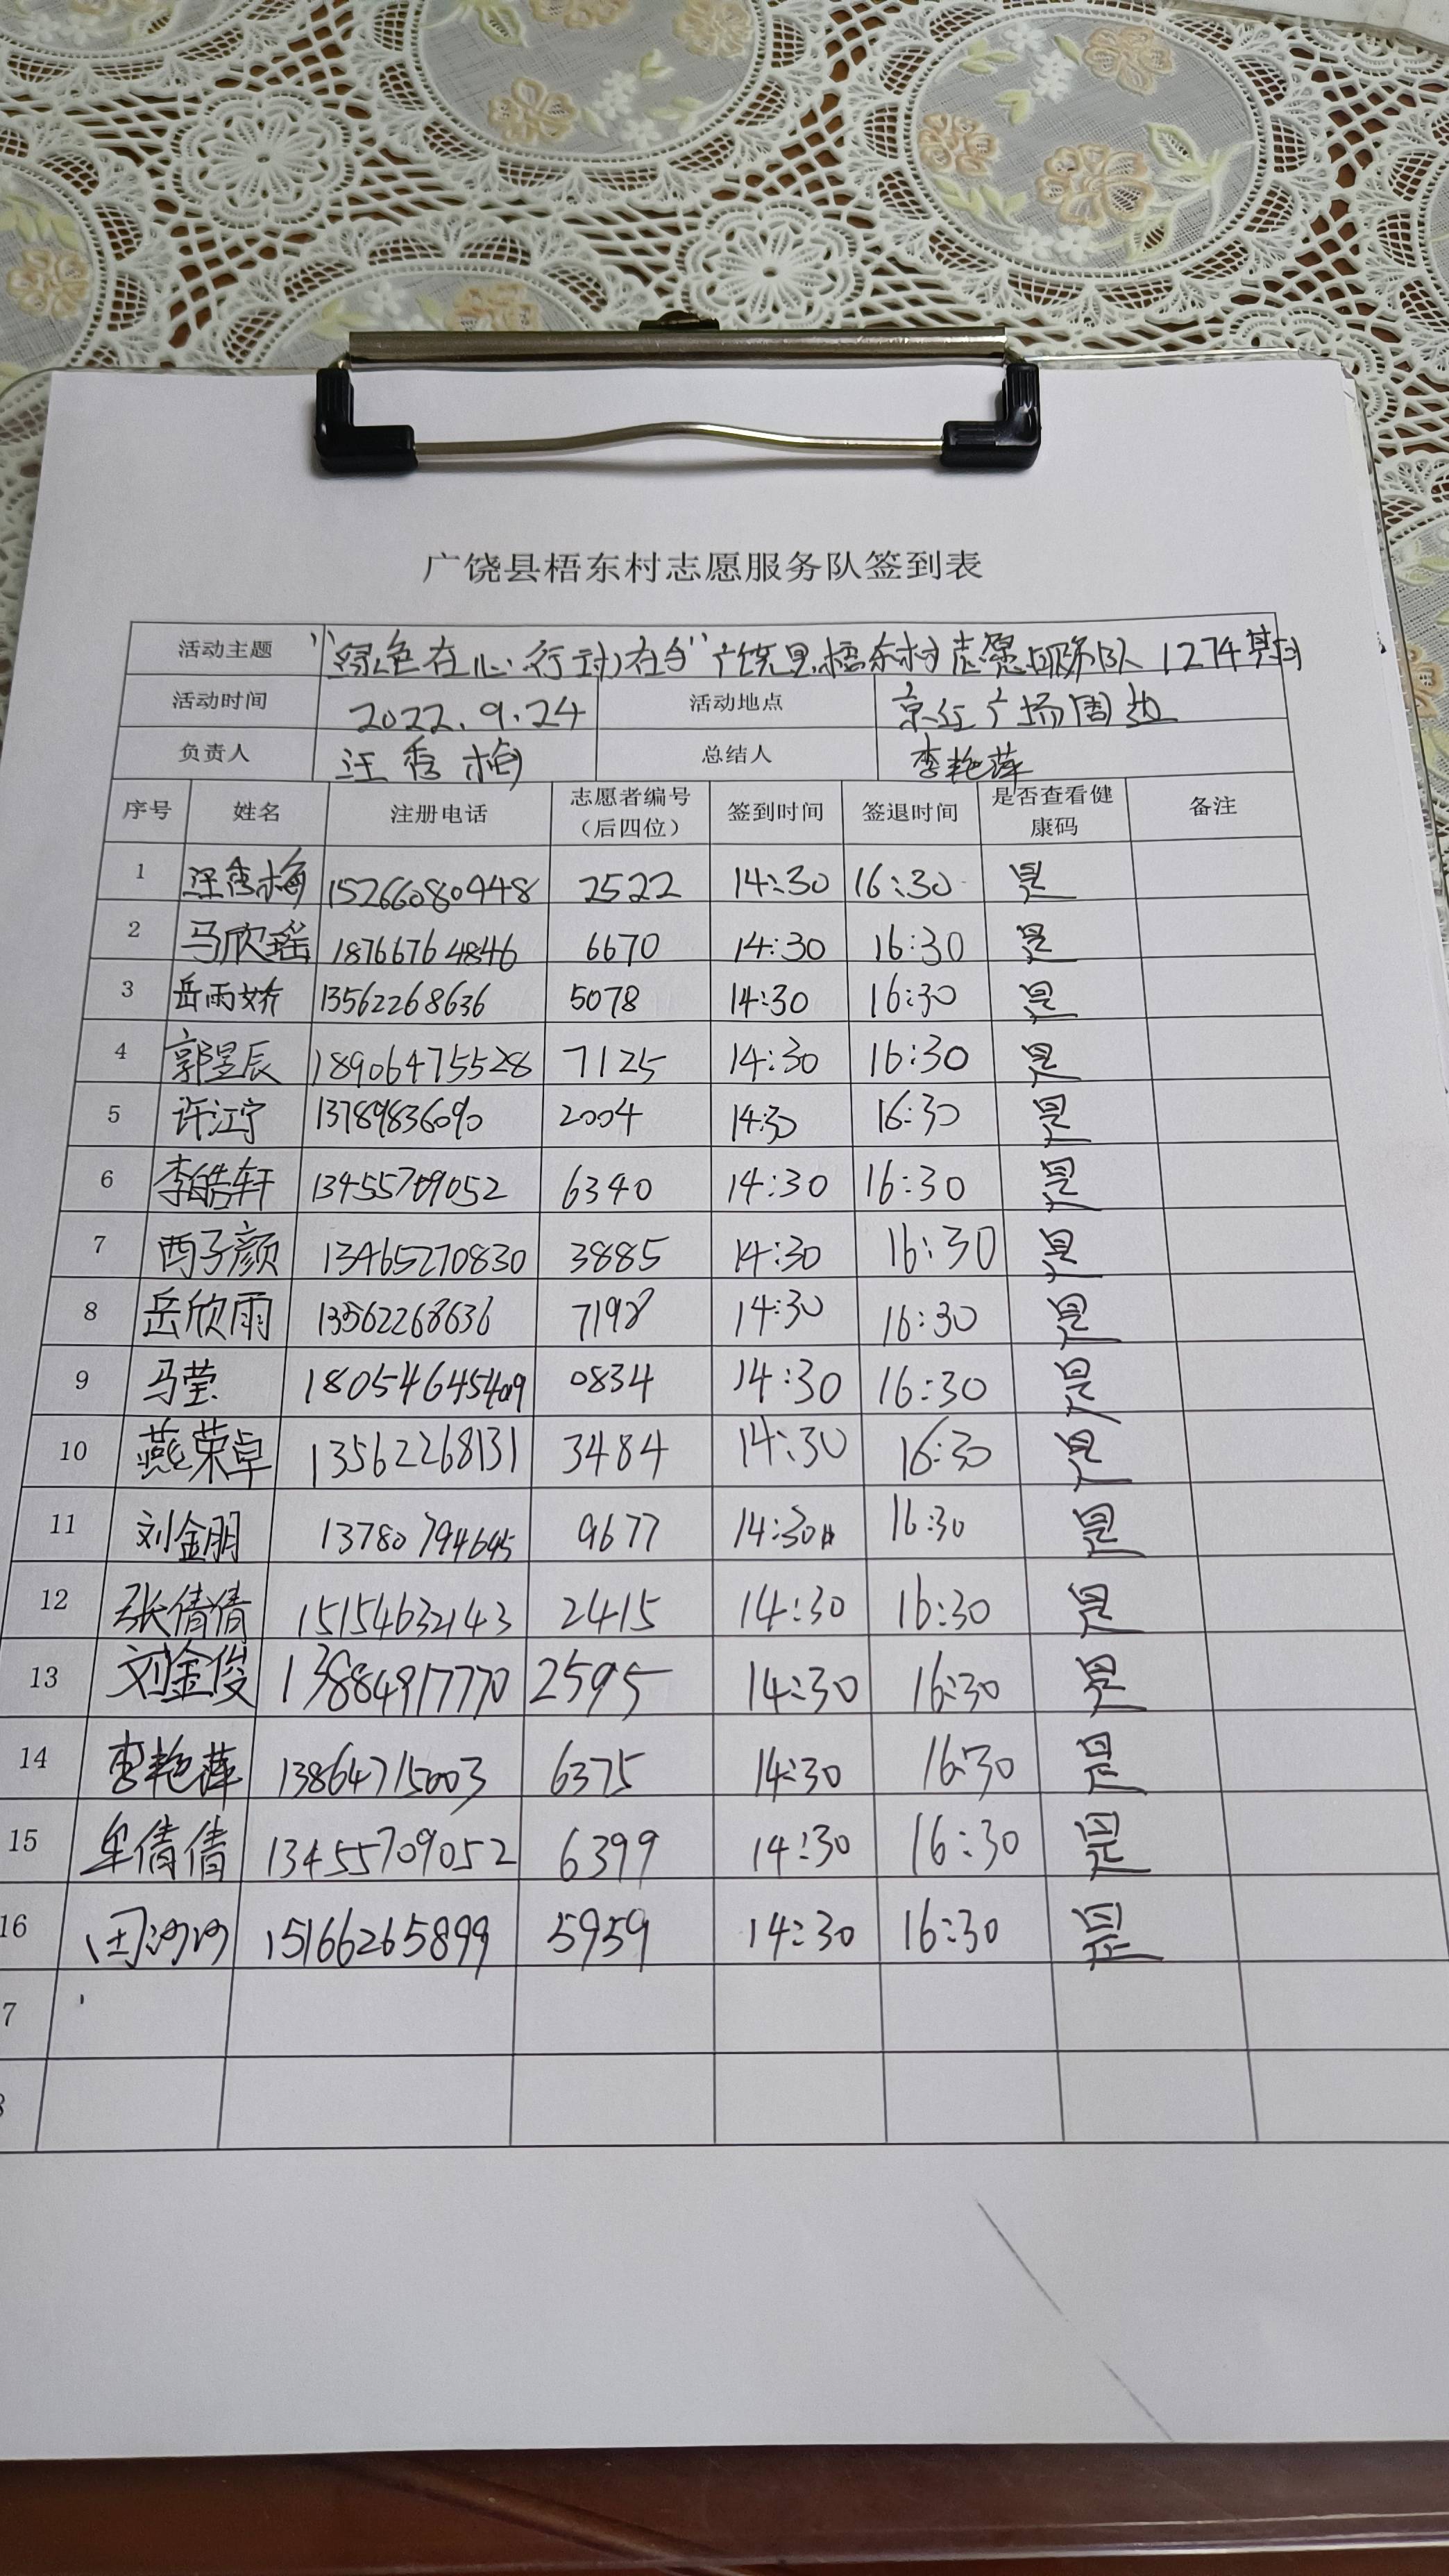 广饶县梧东村志愿服务队签到表
活动主题 “绿色在心·行动在今”广饶县梧东村志愿服务队1274期
活动时间 2022.9.24 活动地点 京江广场周边
负责人 汪秀梅 总结人 李艳萍
序号 姓名 注册电话 志愿者编号（后四位） 签到时间 签退时间 是否查看健康码 备注
1 汪秀梅 15266080948 2522 14:30 16:30 是
2 马欣瑶 18766764846 6670 14:30 16:30 是
3 岳雨娇 13562268636 5078 14:30 16:30 是
4 郭昱辰 18906475528 7125 14:30 16:30 是
5 许江宁 13789836090 2004 14:30 16:30 是
6 李皓轩 13455709052 6340 14:30 16:30 是
7 西子颜 13465270830 3885 14:30 16:30 是
8 岳欣雨 13562268636 7198 14:30 16:30 是
9 马莹 0834 14:30 16:30 是
10 燕荣卓 13562268131 3484 14:30 16:30 是
11 刘金朋 13780794645 9677 14:30 16:30 是
12 张倩倩 15154632143 2415 14:30 16:30 是
13 刘金俊 13884917770 2595 14:30 16:30 是
14 李艳萍 13864715003 6375 14:30 16:30 是
15 牟倩倩 13455709052 6399 14:30 16:30 是
16 田汐汐 15166265899 5959 14:30 16:30 是
7
8